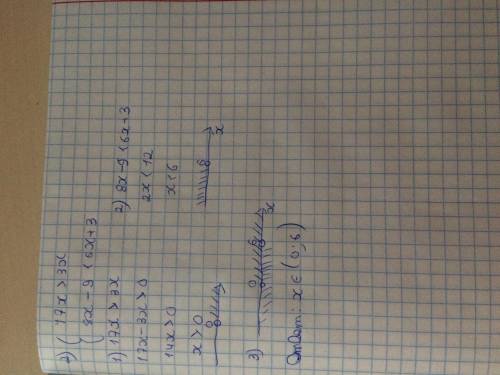 2) { 17x > 3x
8x - 9 < 6x + 3
1) 17x > 3x
17x - 3x > 0
14x > 0
x > 0
0
2) 8x - 9 < 6x + 3
2x < 12
x < 6
6
x
3)
0 6 x
Ответ: x ∈ (0; 6)